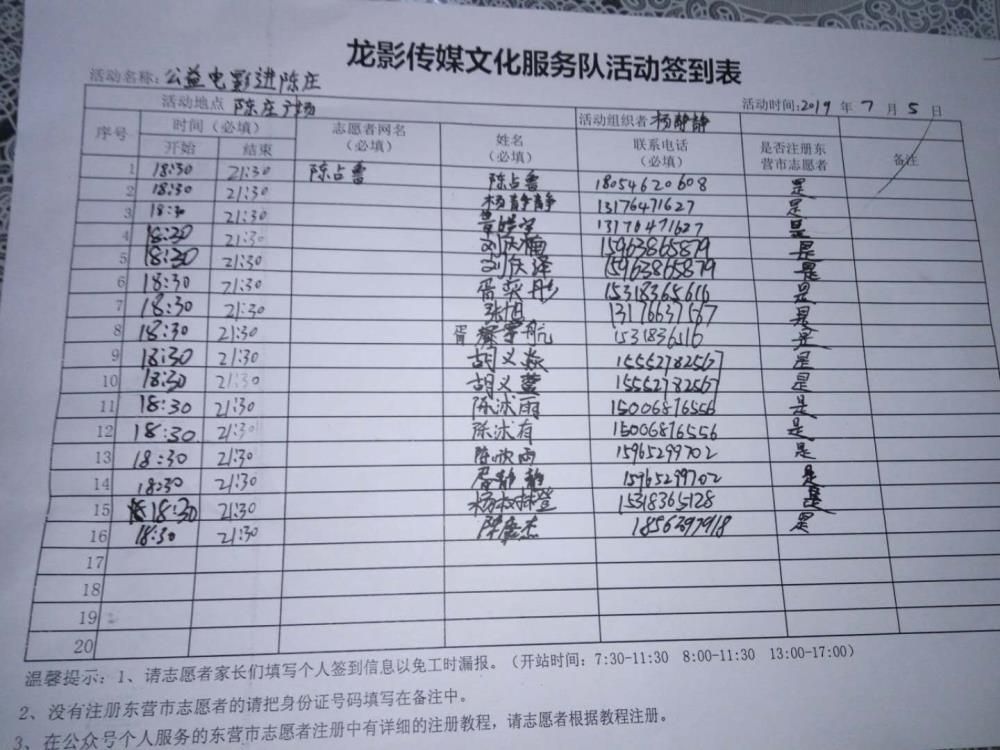 龙影传媒文化服务队活动签到表
活动名称: 公益电影进陈庄
活动时间:2019 年 7 月 5 日
活动地点 陈庄广场 活动组织者 杨静静
序号 时间(必填) 志愿者网名(必填) 姓名(必填) 联系电话(必填) 是否注册东营市志愿者 备注
开始 结束
1 18:30 21:30 陈占鲁 陈占鲁 18054620608 是
2 18:30 21:30 杨静静 13176471627 是
3 18:30 21:30 13176471627 是
4 18:30 21:30 刘庆楠 15963865879 是
5 18:30 21:30 刘庆泽 15963865879 是
6 18:30 21:30 胥奕彤 15318365616 是
7 18:30 21:30 张旭 13176637567 是
8 18:30 21:30 1531836516 是
9 18:30 21:30 胡义焱 15552782567 是
10 18:30 21:30 胡义萱 15552782567 是
11 18:30 21:30 陈沭雨 15006876556 是
12 18:30 21:30 陈沭有 15006876556 是
13 18:30 21:30 陈欣雨 15965299702 是
14 18:30 21:30 15965299702 是
15 18:30 21:30 15318365128 是
16 18:30 21:30 1856297918 是
17
18
19
20
温馨提示: 1、请志愿者家长们填写个人签到信息以免工时漏报。(开站时间: 7:30-11:30 8:00-11:30 13:00-17:00)
2、没有注册东营市志愿者的请把身份证号码填写在备注中。
3、在公众号个人服务的东营市志愿者注册中有详细的注册教程,请志愿者根据教程注册。